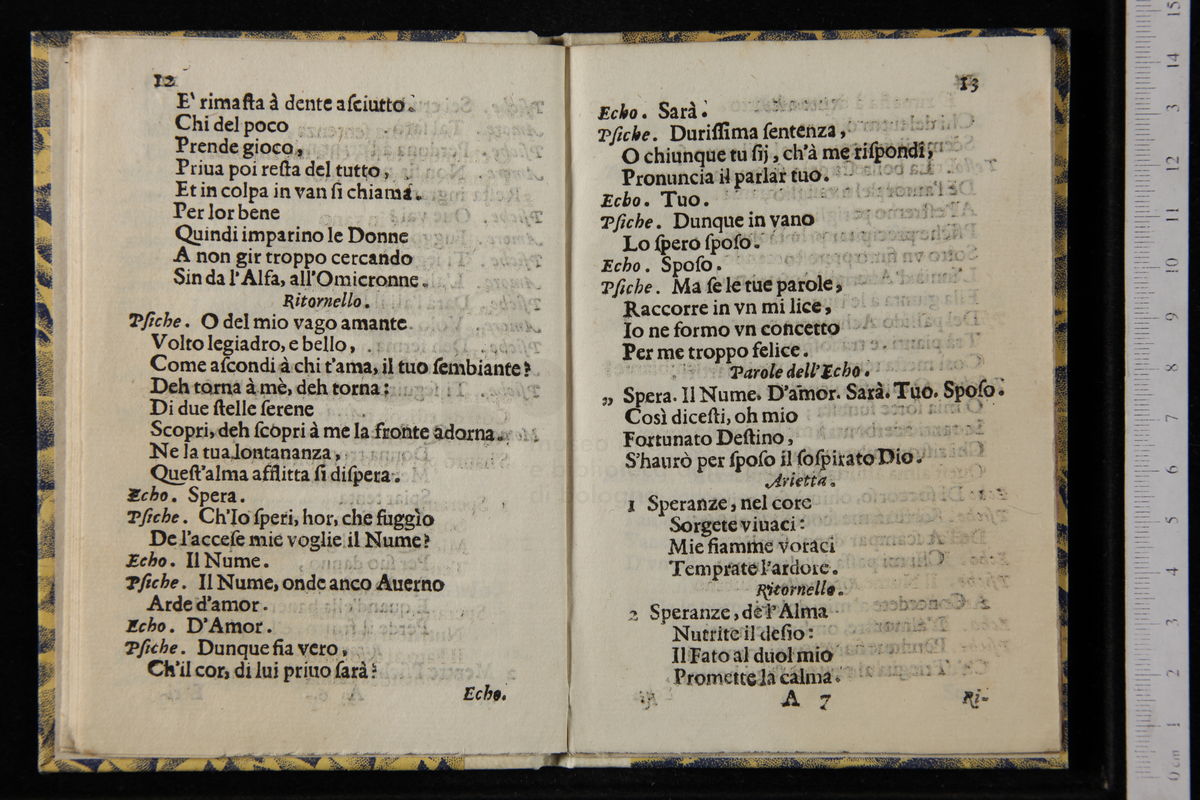 12
E' rimaſta à dente aſciutto.
Chi del poco
Prende gioco,
Priua poi reſta del tutto,
Et in colpa in van ſi chiama.
Per lor bene
Quindi imparino le Donne
A non gir troppo cercando
Sin da l'Alfa, all'Omicronne.
Ritornello.
Pſiche. O del mio vago amante
Volto legiadro, e bello,
Come aſcondi à chi t'ama, il tuo ſembiante?
Deh torna à mè, deh torna:
Di due ſtelle ſerene
Scopri, deh ſcopri à me la fronte adorna.
Ne la tua lontananza,
Queſt'alma afflitta ſi diſpera.
Echo. Spera.
Pſiche. Ch'Io ſperi, hor, che fuggìo
De l'acceſe mie voglie il Nume?
Echo. Il Nume.
Pſiche. Il Nume, onde anco Auerno
Arde d'amor.
Echo. D'Amor.
Pſiche. Dunque fia vero,
Ch'il cor, di lui priuo ſarà?
Echo.
13
Echo. Sarà.
Pſiche. Duriſſima ſentenza,
O chiunque tu ſij, ch'à me riſpondi,
Pronuncia il parlar tuo.
Echo. Tuo.
Pſiche. Dunque in vano
Lo ſpero ſpoſo.
Echo. Spoſo.
Pſiche. Ma ſe le tue parole,
Raccorre in vn mi lice,
Io ne formo vn concetto
Per me troppo felice.
Parole dell'Echo.
„ Spera. Il Nume. D'amor. Sarà. Tuo. Spoſo.
Così diceſti, oh mio
Fortunato Deſtino,
S'haurò per ſpoſo il ſoſpirato Dio.
Arietta.
1 Speranze, nel core
Sorgete viuaci:
Mie fiamme voraci
Temprate l'ardore.
Ritornello.
2 Speranze, de l'Alma
Nutrite il deſio:
Il Fato al duol mio
Promette la calma.
A 7
Ri-